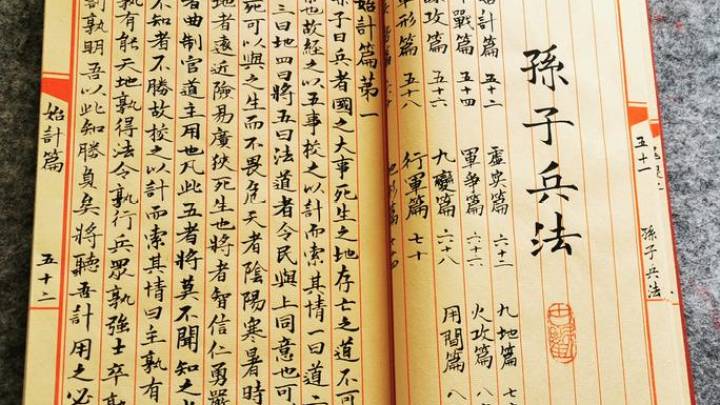 五十一 孫子兵法
孫子兵法
始計篇 五十二 虛實篇 六十二 九地篇
戰篇 五十四 軍爭篇 六十六 火攻篇 八
謀攻篇 五十六 九變篇 六十八 用間篇 八
軍形篇 五十八 行軍篇 七十
始計篇第一
孫子曰兵者國之大事死生之地存亡之道不可
也故經之以五事校之以計而索其情一曰道二
三曰地四曰將五曰法道者令民與上同意也可
死可以與之生而不畏危天者陰陽寒暑時
地者遠近險易廣狹死生也將者智信仁勇嚴
者曲制官道主用也凡此五者將莫不聞知之
不知者不勝故校之以計而索其情曰主孰有
孰有能天地孰得法令孰行兵眾孰強士卒孰
罰孰明吾以此知勝負矣將聽吾計用之必
始計篇 五十二